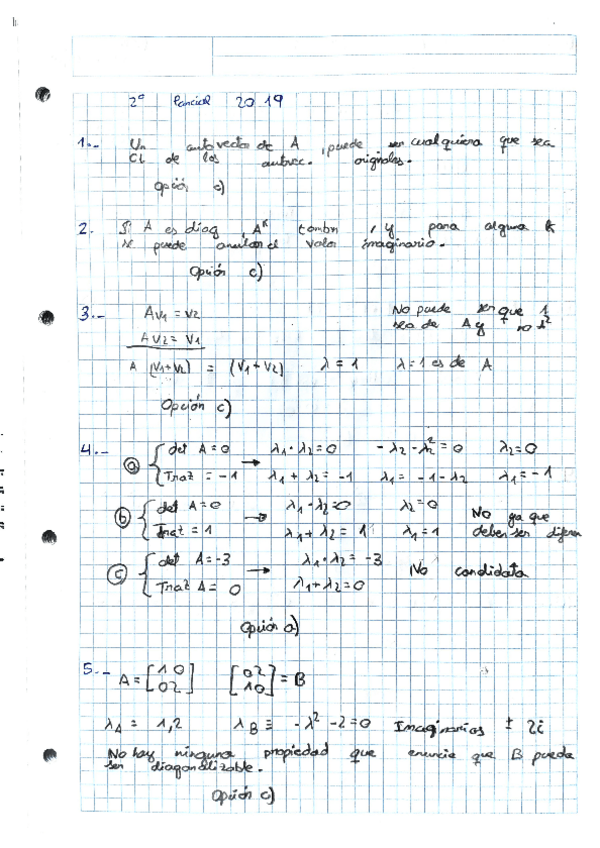 2º Parcial 2019
1.- Un autovector de A, puede ser cualquiera que sea
CL de los autovec. originales.
Opción c)
2. Si A es diag, A^k tambn, y para alguna k
se puede anular el valor imaginario.
Opción c)
3.- Av1 = v2 No puede ser que 1
Av2 = v1 sea de A y no
A (v1+v2) = (v1+v2) λ = 1 λ=1 es de A
Opción c)
4.- a) { det A=0 → λ1·λ2=0 -λ2-λ2²=0 λ2=0
Traz = -1 λ1+λ2=-1 λ1=-1-λ2 λ1=-1
b) { det A=0 → λ1·λ2=0 λ2=0 No ya que
Traz = 1 λ1+λ2=1 λ1=1 deben ser diferen
c) { det A=-3 → λ1·λ2=-3 No candidata
Traz A= 0 λ1+λ2=0
Opción a)
5.- A = [1 0 / 0 2] [0 2 / 1 0] = B
λA = 1,2 λB = -λ²-2=0 Imaginarios ± 2i
No hay ninguna propiedad que enuncie que B pueda
ser diagonalizable.
Opción c)